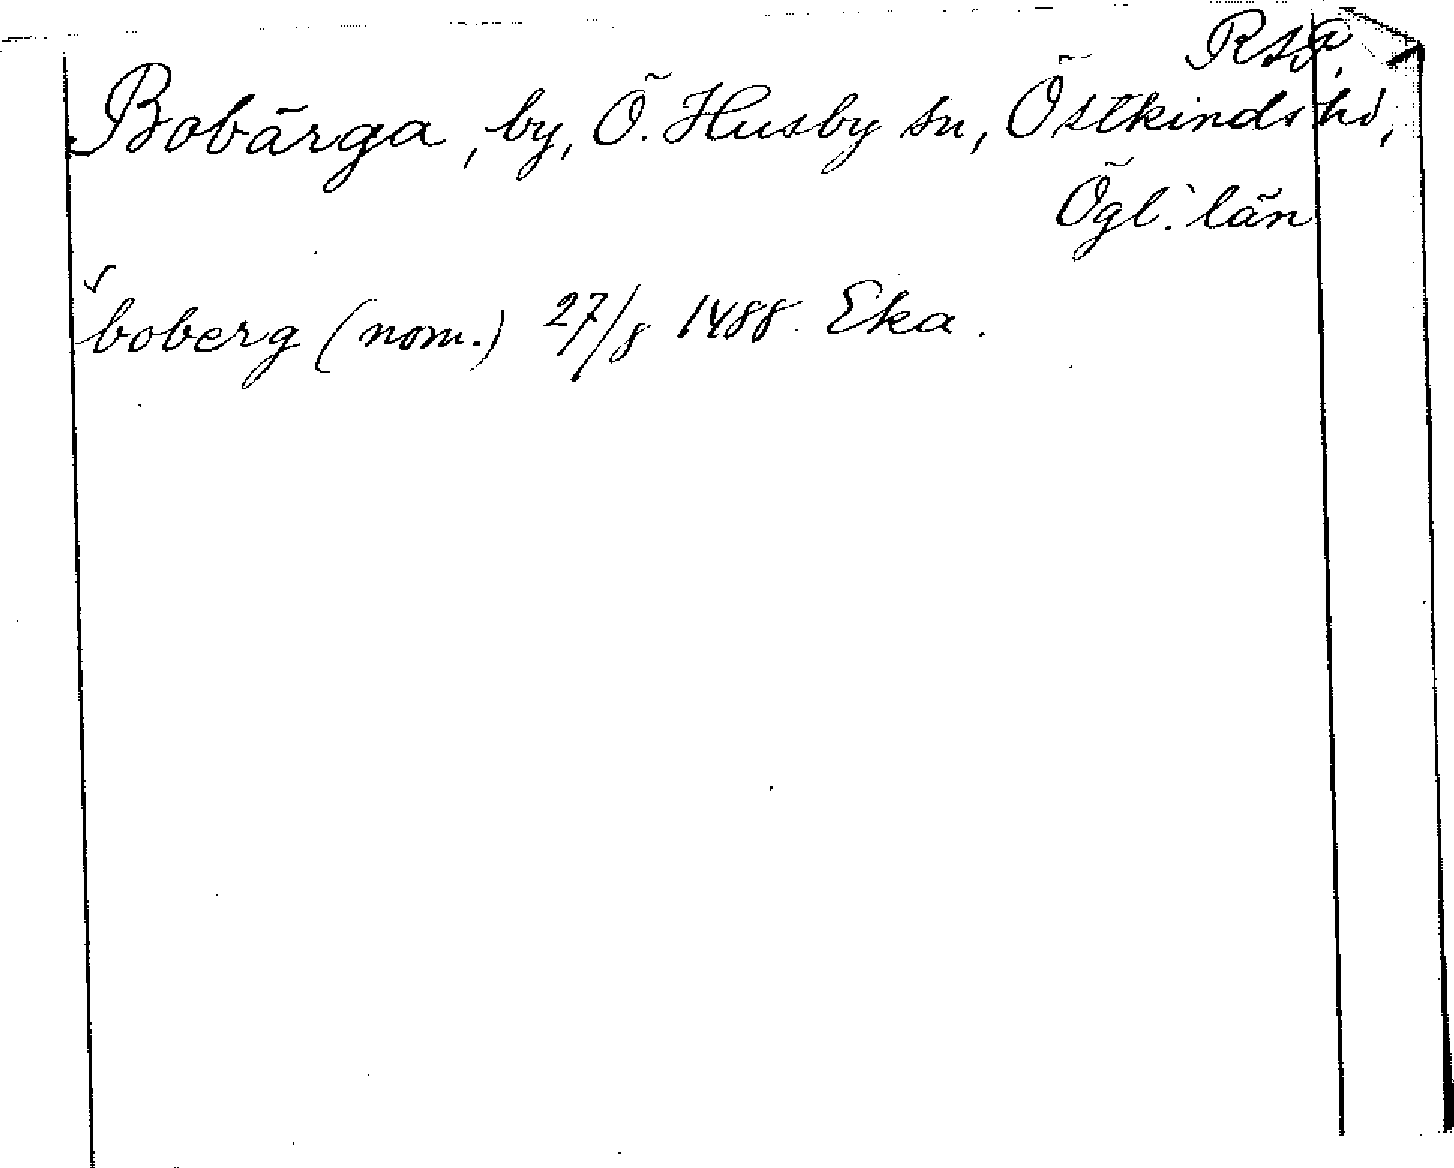 Bobärga, by, Ö. Husby sn, Östkinds hd,
Ögl. län
boberg (nom.) 27/8 1488. Eka.